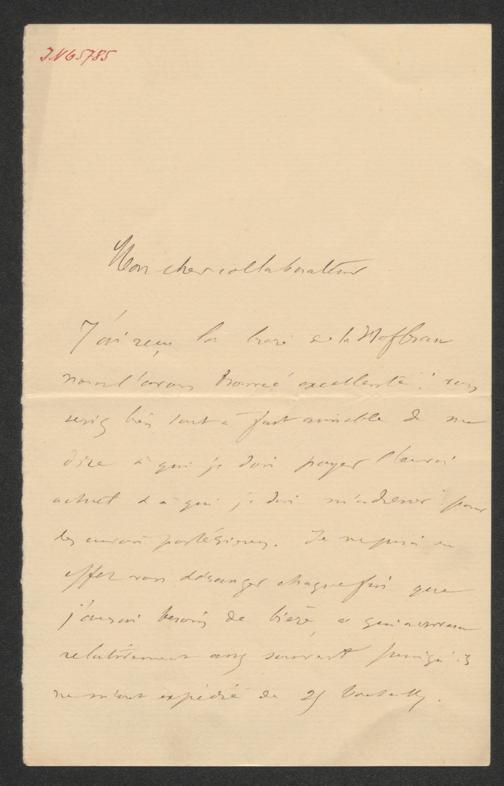 IN 65785
Mon cher collaborateur
J'ai reçu la bière de la Hofbrau
nous l'avons trouvée excellente! vous
seriez bien tout à fait aimable de me
dire à qui je dois payer l'envoi
actuel & à qui je dois m'adresser pour
les envois postérieurs. Je ne puis en
effet vous déranger chaque fois que
j'aurai besoin de bière, ce qui arrivera
relativement assez souvent puisqu'ils
ne m'ont expédié que 25 bouteilles.